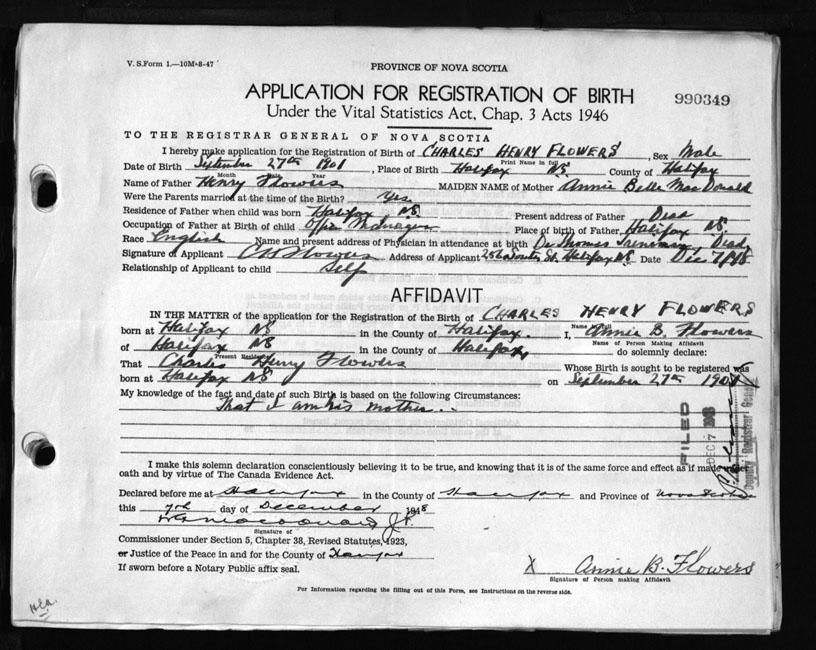 V. S. Form 1.—10M-8-47
PROVINCE OF NOVA SCOTIA
APPLICATION FOR REGISTRATION OF BIRTH
990349
Under the Vital Statistics Act, Chap. 3 Acts 1946
TO THE REGISTRAR GENERAL OF NOVA SCOTIA
I hereby make application for the Registration of Birth of CHARLES HENRY FLOWERS, Sex Male
Print Name in full
Date of Birth September 27th 1901, Place of Birth Halifax NS. County of Halifax
Month Date Year
Name of Father Henry Flowers MAIDEN NAME of Mother Annie Belle MacDonald
Were the Parents married at the time of the Birth? Yes.
Residence of Father when child was born Halifax NS. Present address of Father Dead
Occupation of Father at Birth of child Office Manager Place of birth of Father Halifax NS.
Race English Name and present address of Physician in attendance at birth Dr Thomas Dead
Signature of Applicant C H Flowers Address of Applicant St. Halifax NS. Date Dec 7/48
Relationship of Applicant to child Self
AFFIDAVIT
IN THE MATTER of the application for the Registration of the Birth of CHARLES HENRY FLOWERS
Name in full
born at Halifax NS in the County of Halifax. I, Annie B. Flowers
Name of Person Making Affidavit
of Halifax NS in the County of Halifax, do solemnly declare:
Present Residence
That Charles Henry Flowers Whose Birth is sought to be registered was
born at Halifax NS on September 27th 1901
My knowledge of the fact and date of such Birth is based on the following Circumstances:
That I am his mother..
FILED
DEC 7 1948
Deputy Registrar General
I make this solemn declaration conscientiously believing it to be true, and knowing that it is of the same force and effect as if made under
oath and by virtue of The Canada Evidence Act.
Declared before me at Halifax in the County of Halifax and Province of Nova Scotia
this 7th day of December 1948
J.P.
Signature of
Commissioner under Section 5, Chapter 38, Revised Statutes, 1923,
or Justice of the Peace in and for the County of Halifax
If sworn before a Notary Public affix seal.
X Annie B. Flowers
Signature of Person making Affidavit
For Information regarding the filling out of this Form, see Instructions on the reverse side.